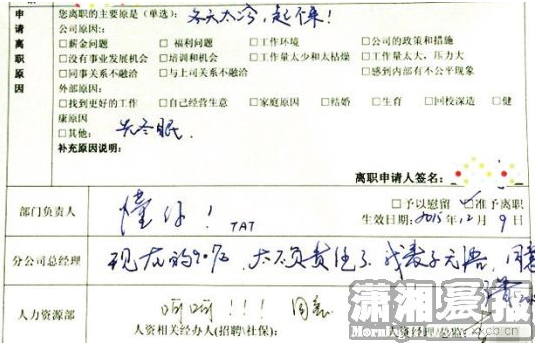 申请离职原因
您离职的主要原是(单选): 冬天太冷,起不来!
公司原因::
□薪金问题 □福利问题 □工作环境 □公司的政策和措施
□没有事业发展机会 □培训和机会 □工作量太少和太枯燥 □工作量太大,压力大
□同事关系不融洽 □与上司关系不融洽 □感到内部有不公平现象
外部原因:
□找到更好的工作 □自己经营生意 □家庭原因 □结婚 □生育 □回校深造 □健
康原因
□其他: 先冬眠
补充原因说明:
离职申请人签名:
部门负责人
懂你! TAT
□予以慰留 □准予离职
生效日期:2015年12月9日
分公司总经理
现在的90后,太不负责任了,我表示无语,同意
人力资源部
呵呵!!! 同意
人资相关经办人(招聘/社保):
人资经理/总监:
潇湘晨报